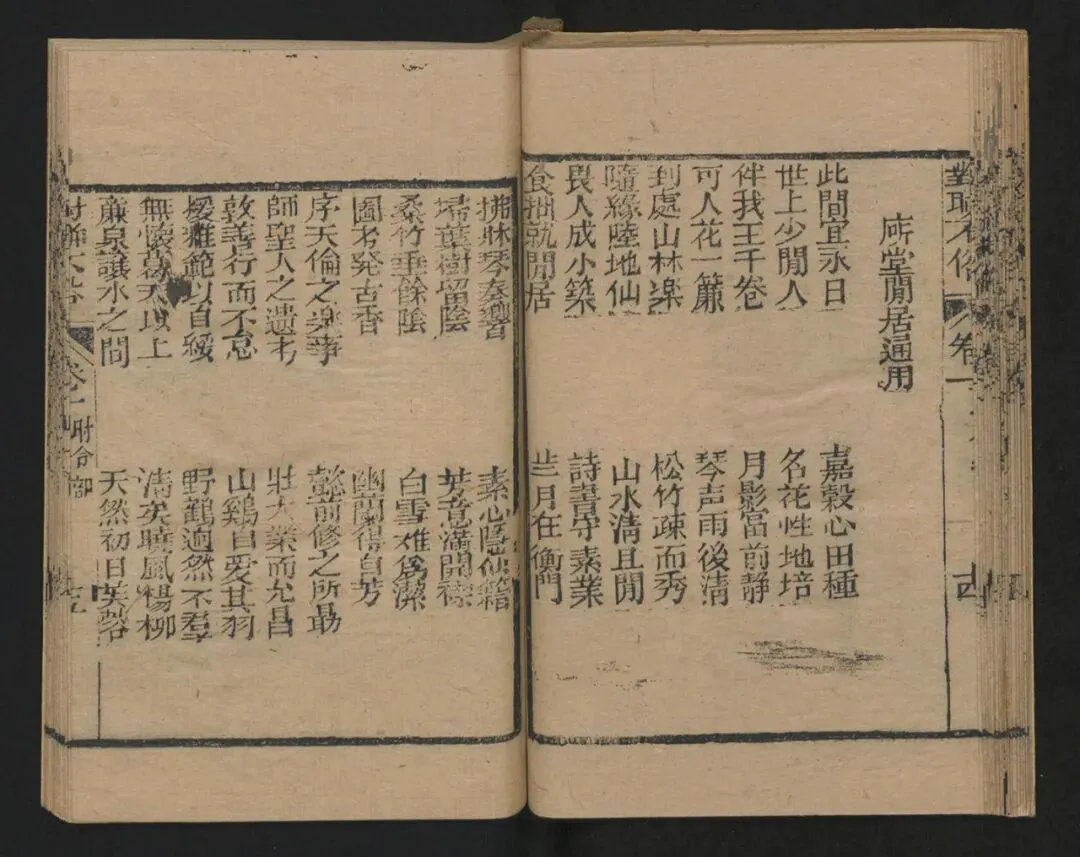 廳堂閒居通用
此間宜永日
嘉穀心田種
世上少閒人
名花性地培
伴我王千卷
月影當前静
可人花一簾
琴声雨後清
到處山林楽
松竹疎而秀
隨緣陸地仙
山水清且閒
畏人成小築
詩書守素業
食拙就閒居
嵗月在衡門
拂牀琴奏響
素心隱仙籍
埽葉樹留陰
芳意满開襟
桑竹垂餘陰
白雪难為潔
圖书発古香
幽蘭得自芳
序天倫之楽事
懿前修之所勗
師聖人之遺书
壯大業而允昌
敦善行而不怠
山鷄自愛其羽
援雅範以自綏
野鶴逈然不羣
無懷葛天以上
清矣曉風楊柳
亷泉讓水之間
天然初日芙蓉
卷一 附合部